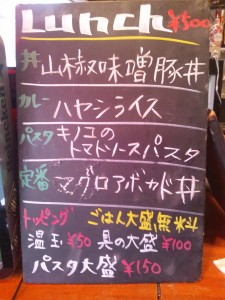 Lunch ¥500
丼 山椒味噌豚丼
カレー ハヤシライス
パスタ キノコの
トマトソースパスタ
定番 マグロアボカド丼
トッピング ごはん大盛無料
温玉¥50 具の大盛¥100
パスタ大盛¥150